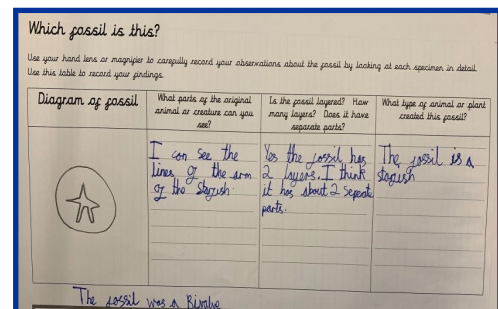 Which fossil is this?
Use your hand lens or magnifier to carefully record your observations about the fossil by looking at each specimen in detail.
Use this table to record your findings.
Diagram of fossil
What parts of the original
animal or creature can you
see?
Is the fossil layered? How
many layers? Does it have
separate parts?
What type of animal or plant
created this fossil?
I can see the
lines of the arm
of the stagish.
Yes the fossil has
2 layers. I think
it has about 2 seperate
parts.
The fossil is a
stagish
The fossil was a Bivalve